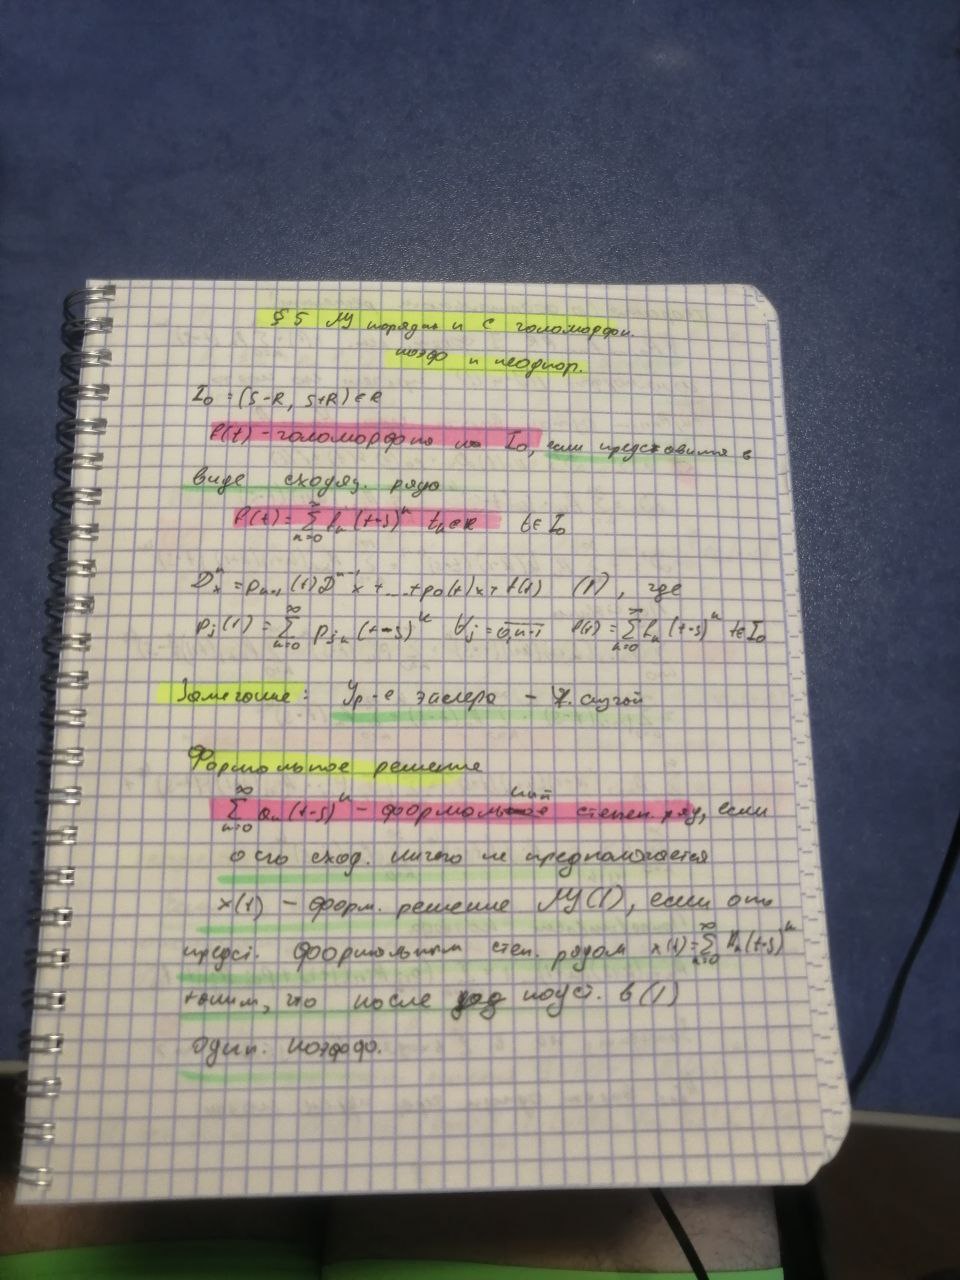 §5 ЛУ порядка n с голоморфн.
коэфф и неоднор.
I₀ = (s-R, s+R) ∈ R
f(t) - голоморфна на I₀, если представима в
виде сходящ. ряда
f(t) = ∑_{n=0}^{∞} fₙ (t-s)ⁿ fₙ ∈ R t ∈ I₀
Dⁿx = pₙ₋₁(t)Dⁿ⁻¹x + ... + p₀(t)x + f(t) (1), где
pⱼ(t) = ∑_{n=0}^{∞} pⱼₙ (t-s)ⁿ ∀j = 0,n-1 f(t) = ∑_{n=0}^{∞} fₙ (t-s)ⁿ t ∈ I₀
Замечание: Ур-е Эйлера - случай
Формальное решение
∑_{n=0}^{∞} aₙ (t-s)ⁿ - формальный степен. ряд, если
о его сход. ничего не предполагается
x(t) - форм. решение ЛУ(1), если оно
предст. формальным степ. рядом x(t) = ∑_{n=0}^{∞} (t-s)ⁿ
таким, что после подст. в (1)
один. коэффф.